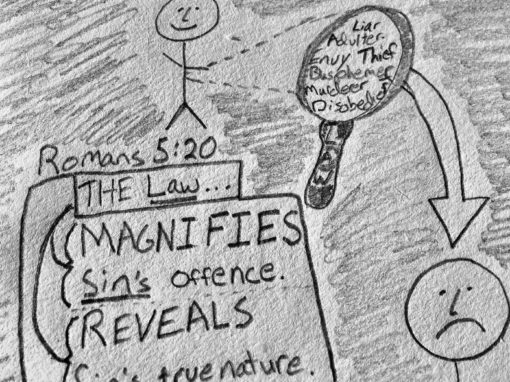 Liar
Adulter-
Envy Thief
Blasphemer
Murdeer
Disobedient
LAW
Romans 5:20
THE Law...
MAGNIFIES
Sin's offence.
REVEALS
Sin's true nature.